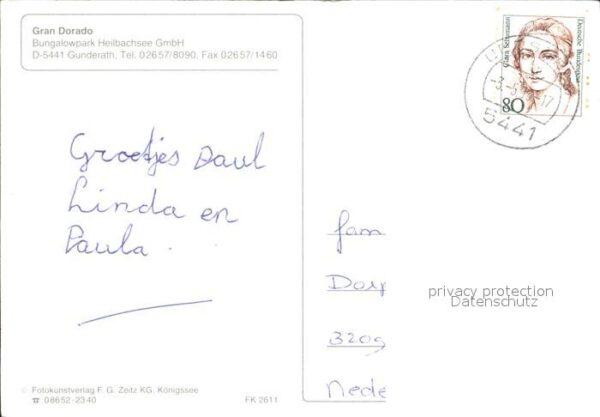 Gran Dorado
Bungalowpark Heilbachsee GmbH
D-5441 Gunderath, Tel. 02657/8090, Fax 02657/1460
Clara Schumann
Deutsche Bundespost
80
5441
Groetjes Paul
Linda en
Paula.
fam
320g
Nede
privacy protection
Datenschutz
© Fotokunstverlag F. G. Zeitz KG, Königssee
☎ 08652-2340
FK 2611